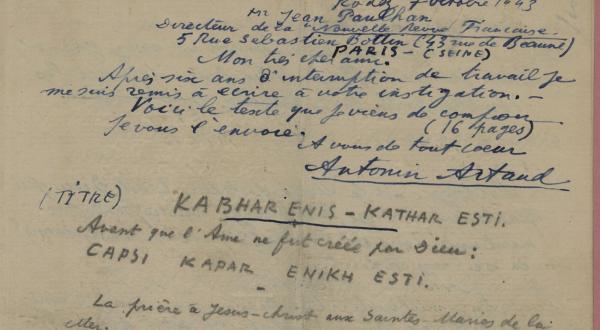 Rodez 7 octobre 1943
Mr Jean Paulhan
Directeur de la Nouvelle Revue Française.
5 Rue Sebastien Bottin (43 rue de Beaune)
PARIS - (SEINE)
Mon très cher ami.
Après six ans d'interruption de travail je
me suis remis à écrire à votre instigation. -
Voici le texte que je viens de composer
(16 pages)
Je vous l'envoie.
A vous de tout coeur
Antonin Artaud
(TITRE)
KABHAR ENIS - KATHAR ESTI.
Avant que l'Ame ne fut créée par Dieu:
CAPSI KAPAR - ENIKH ESTI.
La prière à Jesus-christ aux Saintes Maries de la
Mer.